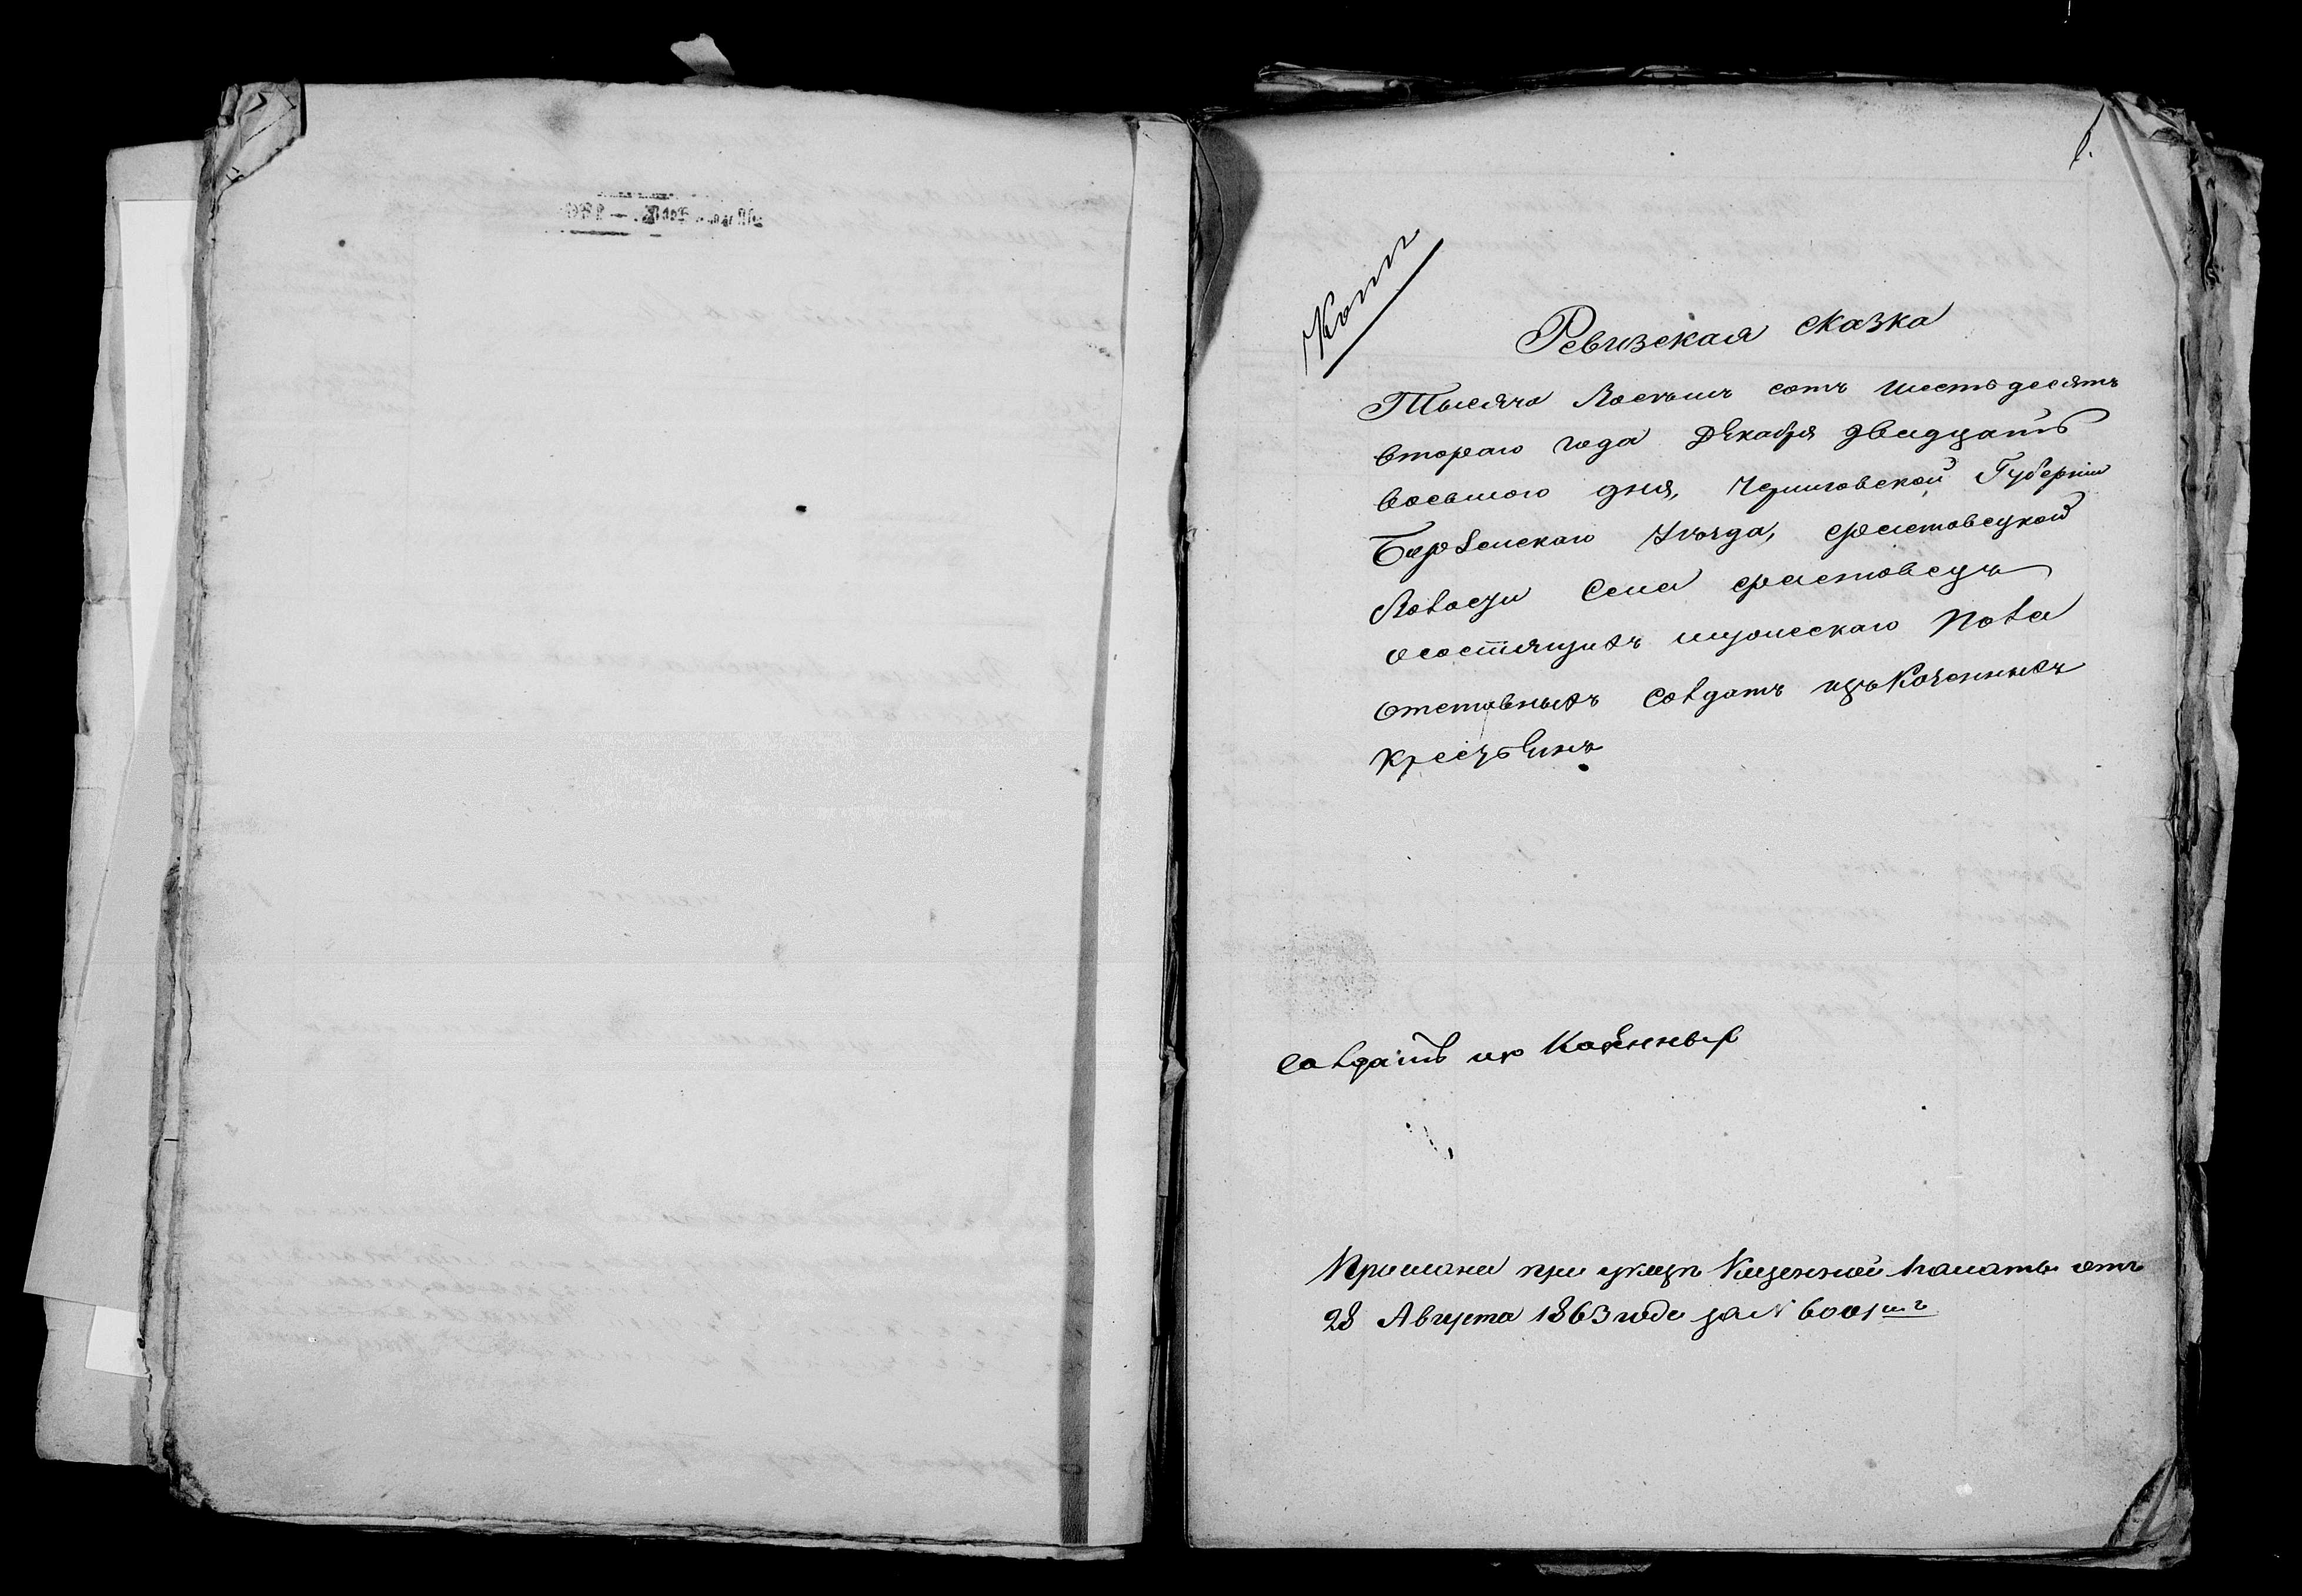 Копия
Ревизская сказка
Тысяча Восемь сотъ шестьдесятъ
втораго года Декабря двадцать
восьмого дня, Черниговской Губерніи
Борзенскаго Уѣзда,
Волости Села
о состоящихъ мужескаго пола
отставныхъ солдатъ изъ Казенныхъ
крестьянъ
солдатъ из Казенных
Прислана при указѣ Казенной палаты отъ
28 Августа 1863 года за № 6001